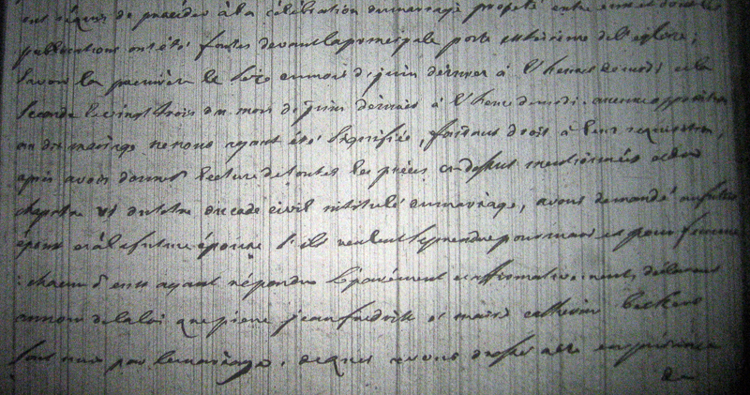 ont requis de proceder à la célébration du mariage projeté entre eux et dont les
publications ont été faites devant la principale porte exterieure de l'eglise;
savoir la premiere le seize du mois de juin dernier à l'heure de midi et la
seconde le vingt trois du mois de juin dernier à l'heure de midi. aucune opposition
au dit mariage ne nous ayant été signifiée, faisant droit à leur requisition,
après avoir donné lecture de toutes les pièces ci-dessus mentionnées et du
chapitre VI du titre du code civil intitulé du mariage, avons demandé au futur
époux et à la future épouse s'ils veulent se prendre pour mari et pour femme
: chacun d'eux ayant répondu séparément et affirmativement, déclarons
au nom de la loi que pierre jean et marie catherine
sont unis par le mariage. de quoi avons dressé acte en présence
de